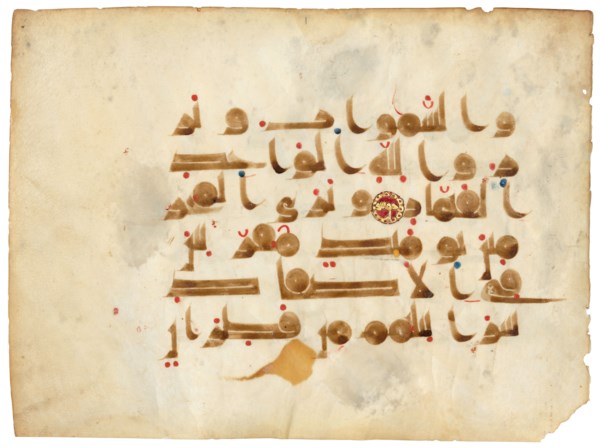 والسموات وبر
زوا لله الواحد
القهار وترى المجر
مين يومئذ مقرنين
في الاصفاد
سرابيلهم من قطران